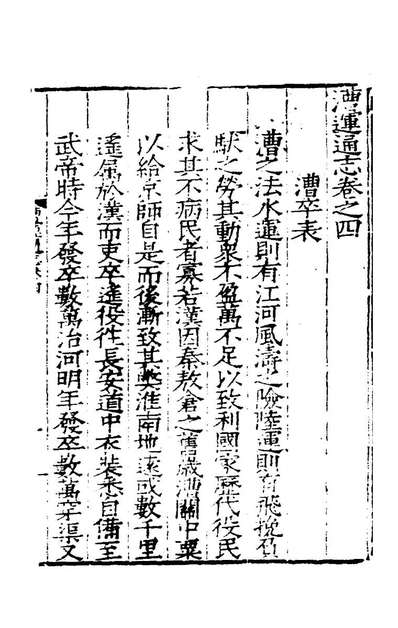 漕運通志卷之四
漕卒表
漕之法水運則有江河風濤之險陸運則有飛輓負
馱之勞其動衆不盈萬不足以致利國家歷代役民
求其不病民者寡若漢因秦敖倉之舊歲漕關中粟
以給京師自是而後漸致其弊淮南地遠或數千里
遥属於漢而吏卒遥役往長安道中衣裝悉自備至
武帝時今年發卒數萬治河明年發卒數萬穿渠又